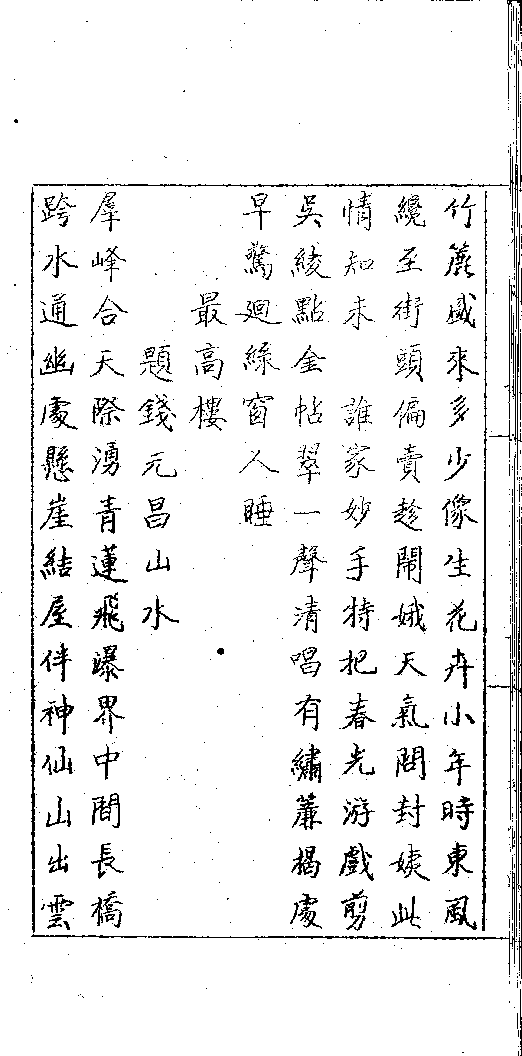 竹簏盛來多少像生花卉小年時東風
纔至街頭偏賣趁鬧娥天氣問封姨此
情知未　誰家妙手持把春光游戲剪
吳綾點金帖翠一聲清唱有繡簾揭處
早驚廻綠窗人睡
最高樓
題錢元昌山水
羣峰合天際湧青蓮飛瀑界中間長橋
跨水通幽處懸崖結屋伴神仙山出雲